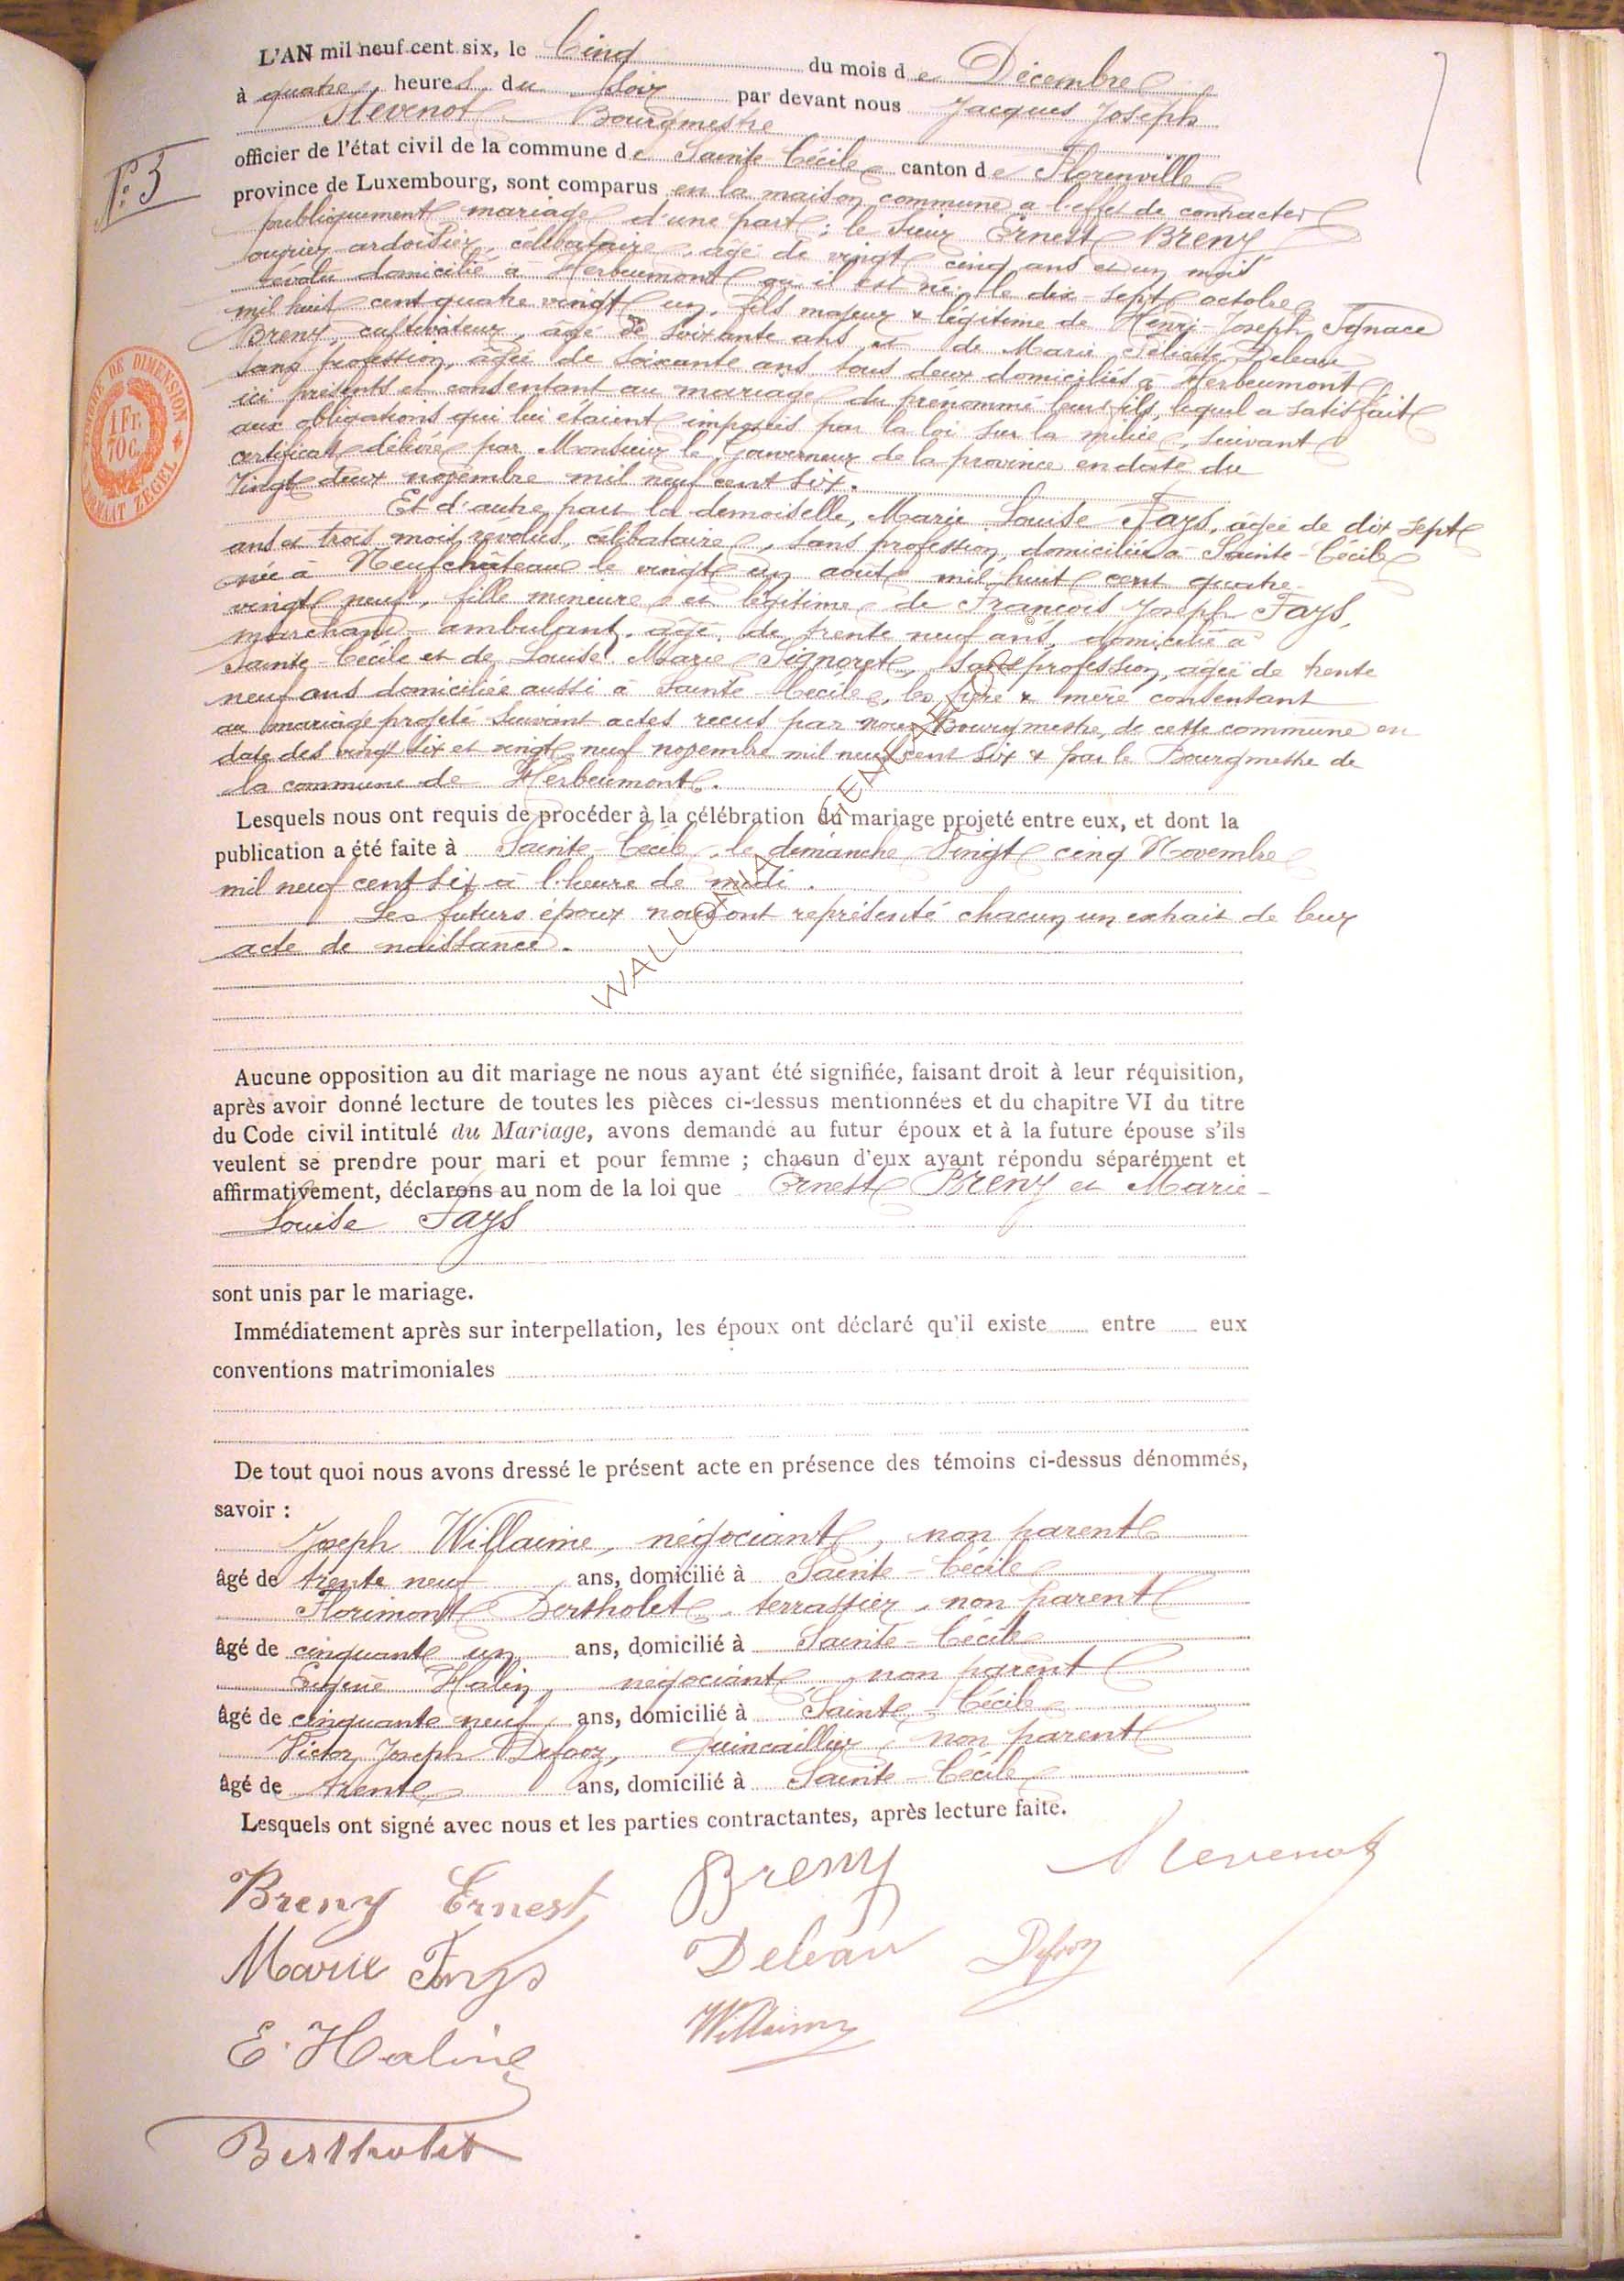 L'AN mil neuf cent six, le Cinq du mois de Décembre
à quatre heures du soir par devant nous Jacques Joseph
Stevenot Bourgmestre
officier de l'état civil de la commune de Sainte-Cécile canton de Florenville
N° 3
province de Luxembourg, sont comparus en la maison commune à l'effet de contracter
publiquement mariage d'une part ; le sieur Ernest Breny
ouvrier ardoisier, célibataire, âgé de vingt cinq ans et un mois
révolu domicilié à Herbeumont où il est né le dix-sept octobre
mil huit cent quatre vingt un, fils majeur & légitime de Henri-Joseph Ignace
Breny, cultivateur, âgé de soixante ans et de Marie Félicité Deleau
sans profession, âgée de soixante ans, tous deux domiciliés à Herbeumont
ici présents et consentant au mariage du prénommé leur fils, lequel a satisfait
aux obligations qui lui étaient imposées par la loi sur la milice, suivant
certificat délivré par Monsieur le Gouverneur de la province en date du
vingt deux novembre mil neuf cent six.
TIMBRE DE DIMENSION
1 Fr.
70 C.
FORMAAT ZEGEL
Et d'autre part la demoiselle, Marie Louise Fays, âgée de dix sept
ans et trois mois révolus, célibataire, sans profession, domiciliée à Sainte-Cécile
née à Neufchâteau le vingt un août mil huit cent quatre-
vingt neuf, fille meneure et légitime de François Joseph Fays,
marchand-ambulant, âgé de trente neuf ans, domicilié à
Sainte-Cécile et de Louise Marie Signoret, sans profession, âgée de trente
neuf ans domiciliée aussi à Sainte-Cécile, les père & mère consentant
au mariage projeté suivant actes reçus par nous Bourgmestre de cette commune en
date des vingt six et vingt neuf novembre mil neuf cent six & par le Bourgmestre de
la commune de Herbeumont.
Lesquels nous ont requis de procéder à la célébration du mariage projeté entre eux, et dont la
publication a été faite à Sainte-Cécile, le dimanche vingt cinq Novembre
mil neuf cent six à l'heure de midi.
Les futurs époux nous ont représenté chacun un extrait de leur
acte de naissance.
© WALLONIA GENEALOGY
Aucune opposition au dit mariage ne nous ayant été signifiée, faisant droit à leur réquisition,
après avoir donné lecture de toutes les pièces ci-dessus mentionnées et du chapitre VI du titre
du Code civil intitulé du Mariage, avons demandé au futur époux et à la future épouse s'ils
veulent se prendre pour mari et pour femme ; chacun d'eux ayant répondu séparément et
affirmativement, déclarons au nom de la loi que Ernest Breny et Marie-
Louise Fays
sont unis par le mariage.
Immédiatement après sur interpellation, les époux ont déclaré qu'il existe entre eux
conventions matrimoniales
De tout quoi nous avons dressé le présent acte en présence des témoins ci-dessus dénommés,
savoir :
Joseph Willaime, négociant, non parent
âgé de trente neuf ans, domicilié à Sainte-Cécile
Florimont Bertholet, terrassier, non parent
âgé de cinquante un ans, domicilié à Sainte-Cécile
Eugène Halin, négociant, non parent
âgé de cinquante neuf ans, domicilié à Sainte-Cécile
Victor Joseph Defooz, quincaillier, non parent
âgé de trente ans, domicilié à Sainte-Cécile
Lesquels ont signé avec nous et les parties contractantes, après lecture faite.
Breny Ernest Breny Stevenot
Marie Fays Deleau Defooz
E. Haline Willaime
Bertholet